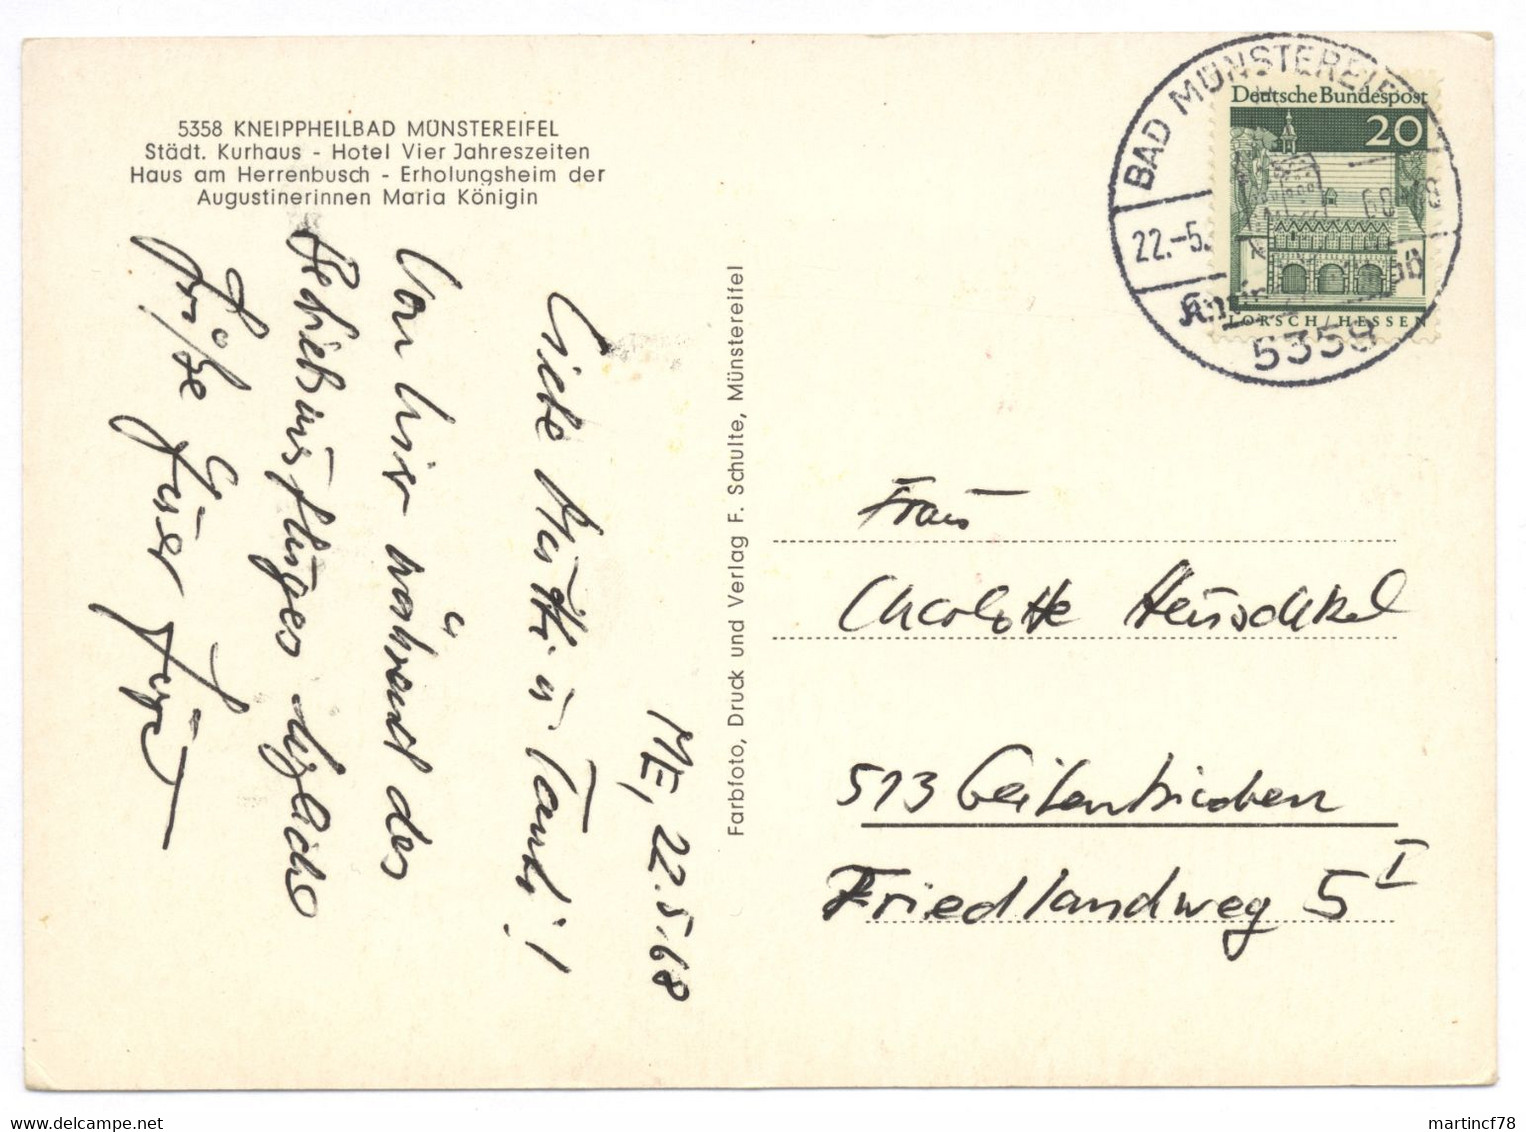 5358 KNEIPPHEILBAD MÜNSTEREIFEL
Städt. Kurhaus - Hotel Vier Jahreszeiten
Haus am Herrenbusch - Erholungsheim der
Augustinerinnen Maria Königin
ME, 22.5.68
Liebe Mutti u
Von hier während des
Betriebsausfluges herzliche
Grüße Euer
Farbfoto, Druck und Verlag F. Schulte, Münstereifel
BAD MÜNSTEREIFEL
22.-5.
5358
Deutsche Bundespost
20
LORSCH/HESSEN
Frau
Charlotte Heuschkel
513 Geilenkirchen
Friedlandweg 5 I
www.delcampe.net
martincf78